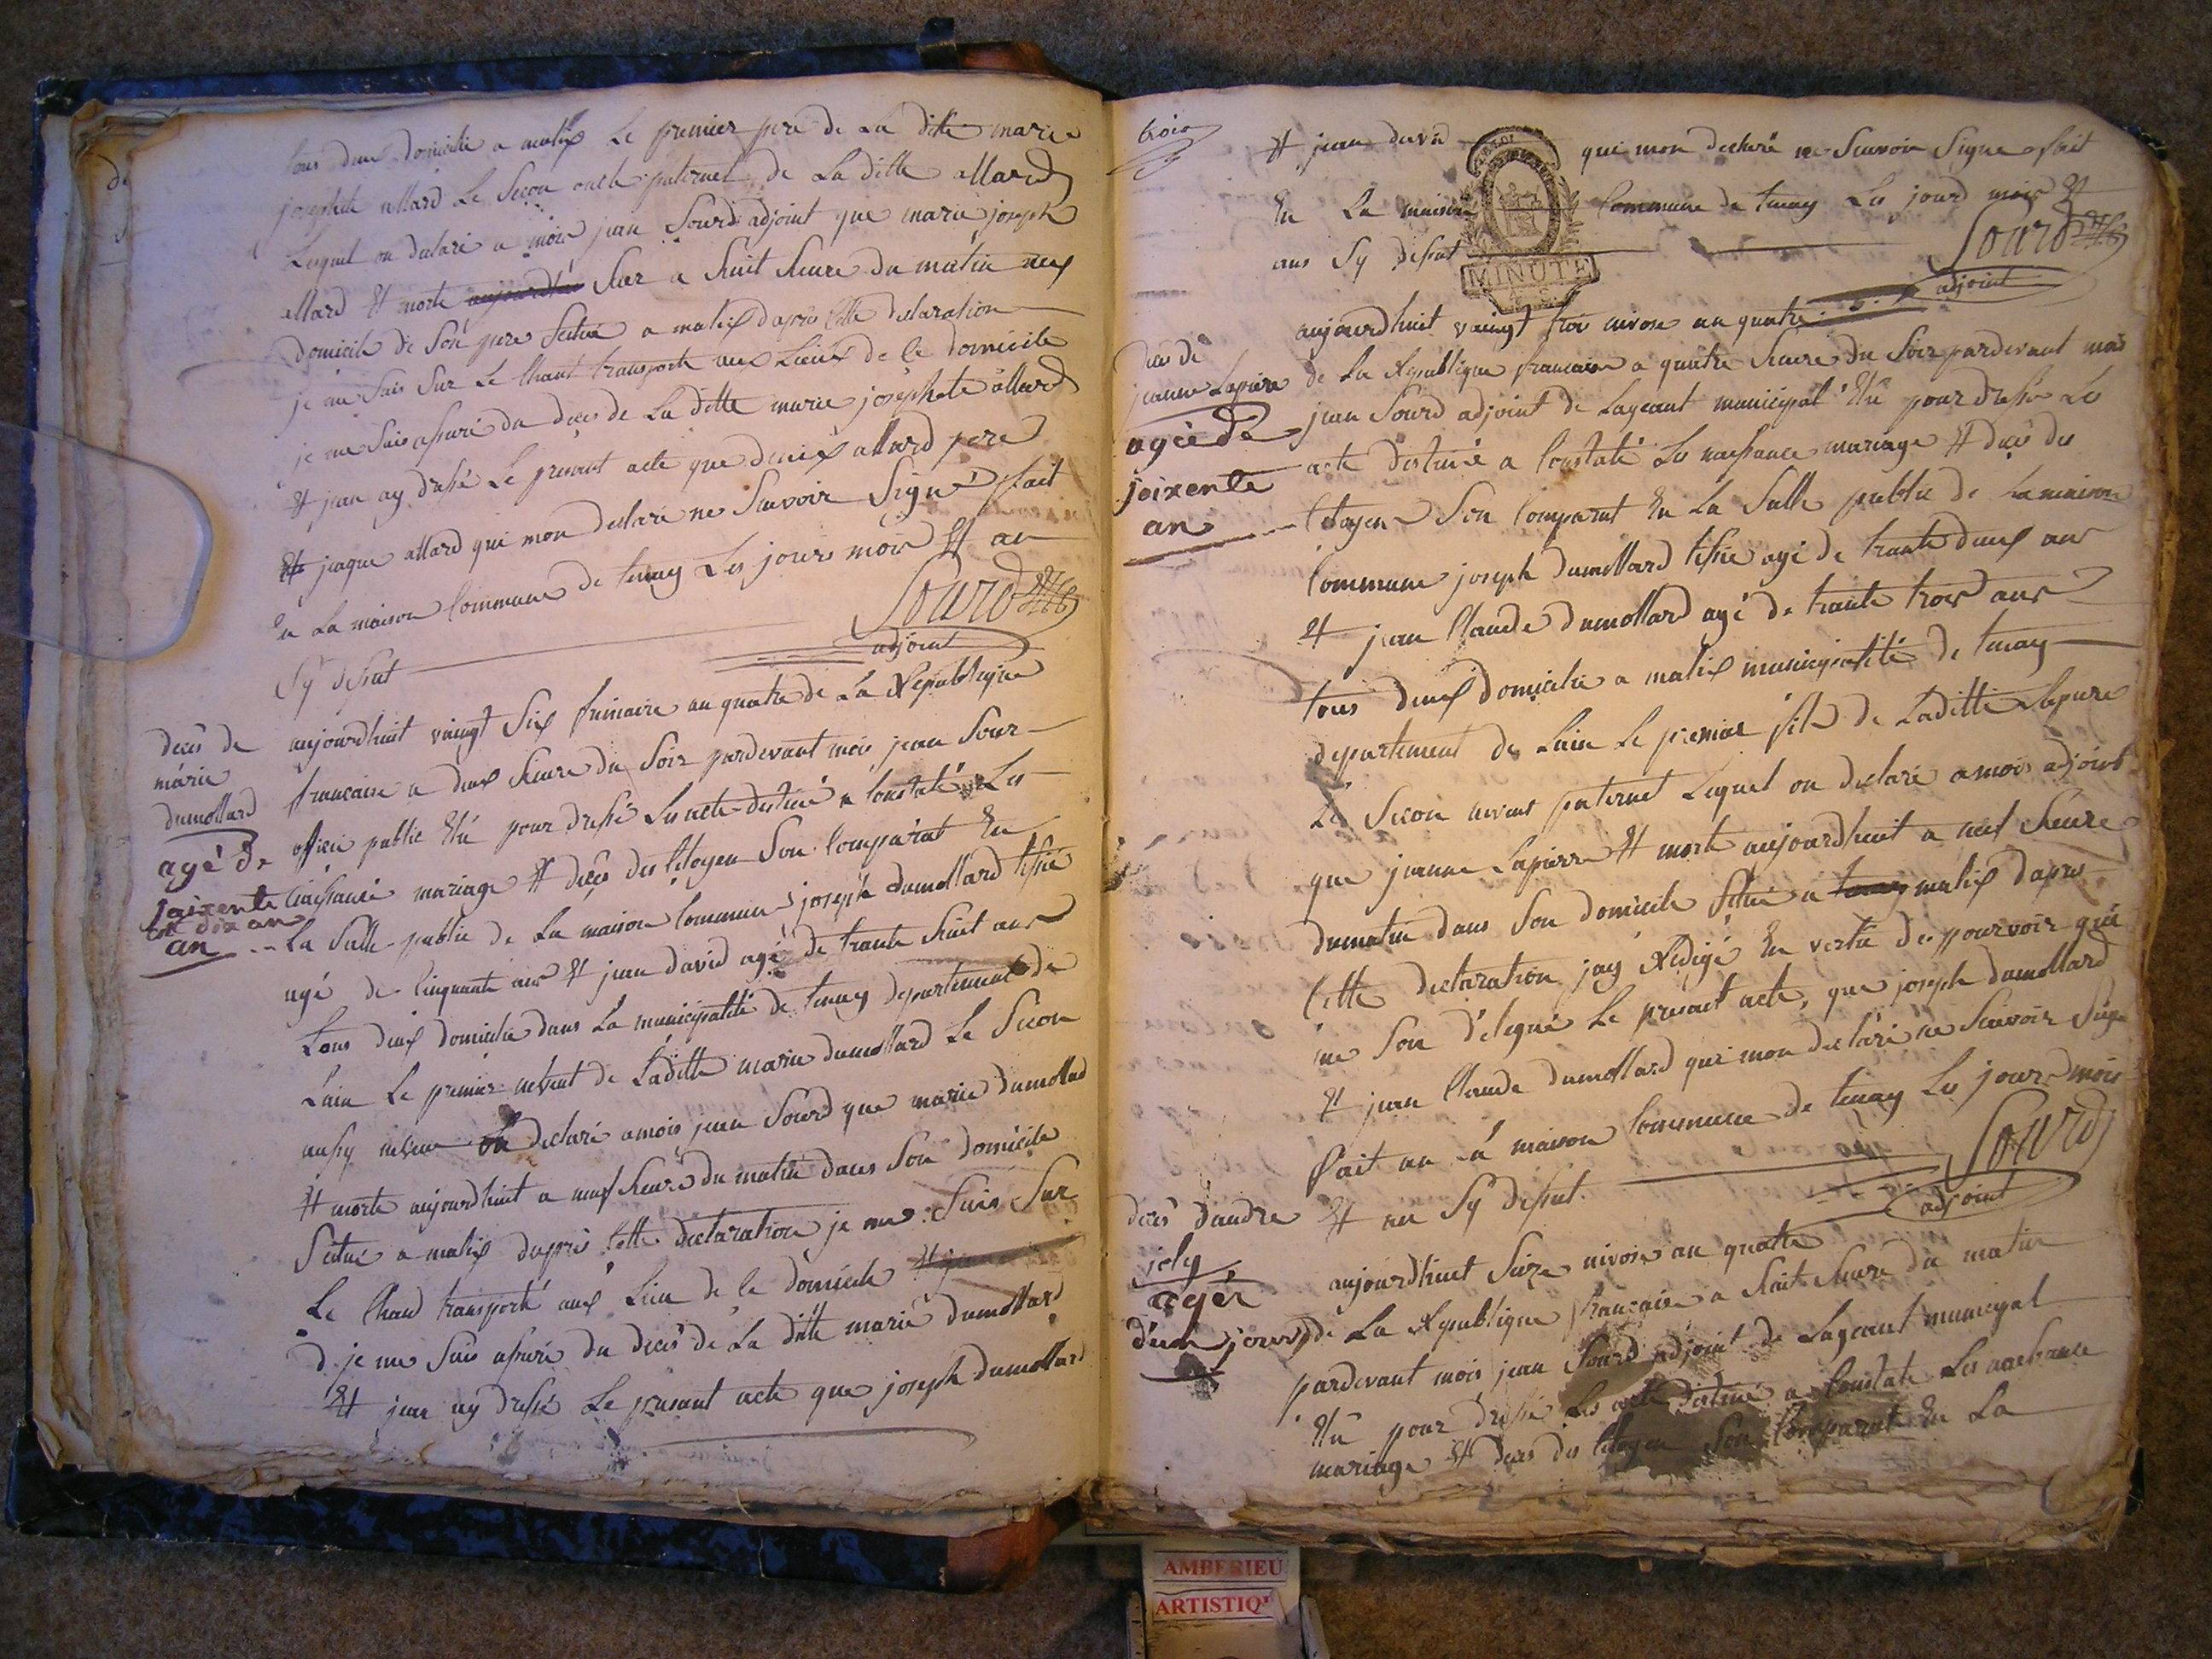 tous deux domicilié a malix Le premier pere de La ditte marie
josephete allard Le Secon oncle paternel de La ditte allard
Lequel on declaré a moi jean Sourd adjoint que marie joseph
allard et morte aujourdhui hier a huit heure du matin aux
domicile de Son pere Scitué a malix dapres cette declaration
je me Suis Sur Le Chant transporte aux Lieux de ce domicile
je me Suis assuré du deces de La ditte marie josephete allard
et jean ay dressé Le presant acte que allard pere
et jaque allard qui mon declaré ne Scavoir Signé fait
En La maison Commune de tenay Les jours mois et an
Sy dessut
Sourd
adjoint
deces de
marie
dumollard
agé de
soixente
dix an
an
aujourdhuit vaingt Six frimaire an quatre de La Republique
francaise a deux heure du Soir pardevant moi jean Sour
officié public Elu pour dressé Les acte destiné a Constaté Les
naissance mariage et deces des Citoyen Son Comparut En
La Salle public de La maison Commune joseph dumollard tissié
agé de Cinquante ans et jean david agé de trante huit ans
tous deux domicilié dans La municipalité de tenay departement de
Lain Le premier neveut de Laditte marie dumollard Le Secon
aussy neveu on declaré a moi jean Sourd que marie dumollard
et morte aujourdhuit a neuf heure du matin dans Son domicile
Scitué a malix dapres cette declaration je me Suis Sur
Le Chand transporté aux Lieu de ce domicile
d je me Suis assuré du deces de La ditte marie dumollard
Et jean ay dressé Le presant acte que joseph dumollard
trois
et jean david qui mon declaré ne Scavoir Signe fait
En La maison Commune de tenay Les jourd mois et
ans Sy dessut
MINUTE
Sourd
adjoint
deces de
jeanne Lapiere
agée de
soixente
an
aujourdhuit vaingt troi nivose an quatre
de La Republique francaise a quatre heure du Soir pardevant moi
jean Sourd adjoint de Lageant municipal Elu pour dressé Les
acte destiné a Constaté Les naissance mariage et deces des
Citoyen Son Comparut En La Salle public de La maison
Commune joseph dumollard tissié agé de trante deux ans
et jean Claude dumollard agé de trante trois ans
tous deux domicilié a malix municipalité de tenay
departement de Lain Le premier fils de Laditte Lapiere
Le Secon neveut paternel Lequel on declaré a moi adjoint
que jeanne Lapierre et morte aujourdhuit a neuf heure
dumatin dans Son domicile Scitué a tenay malix dapres
Cette declaration jay Redigé En vertu des pourvoir qui
me Son delegué Le presant acte, que joseph dumollard
et jean Claude dumollard qui mon declaré ne Scavoir Signe
fait an la maison Commune de tenay Les jour mois
et an Sy dessut.
Sourd
adjoint
deces dandre
joly
agér
d'un jour
aujourdhuit Seize nivose an quatre
de La Republique francaise a huit heure du matin
pardevant moi jean Sourd adjoint de Lageant municipal
Elu pour dressé Les acte destiné a Constate Les naissance
mariage et deces des Citoyen Son Comparut En La
AMBERIEU
ARTISTIQ